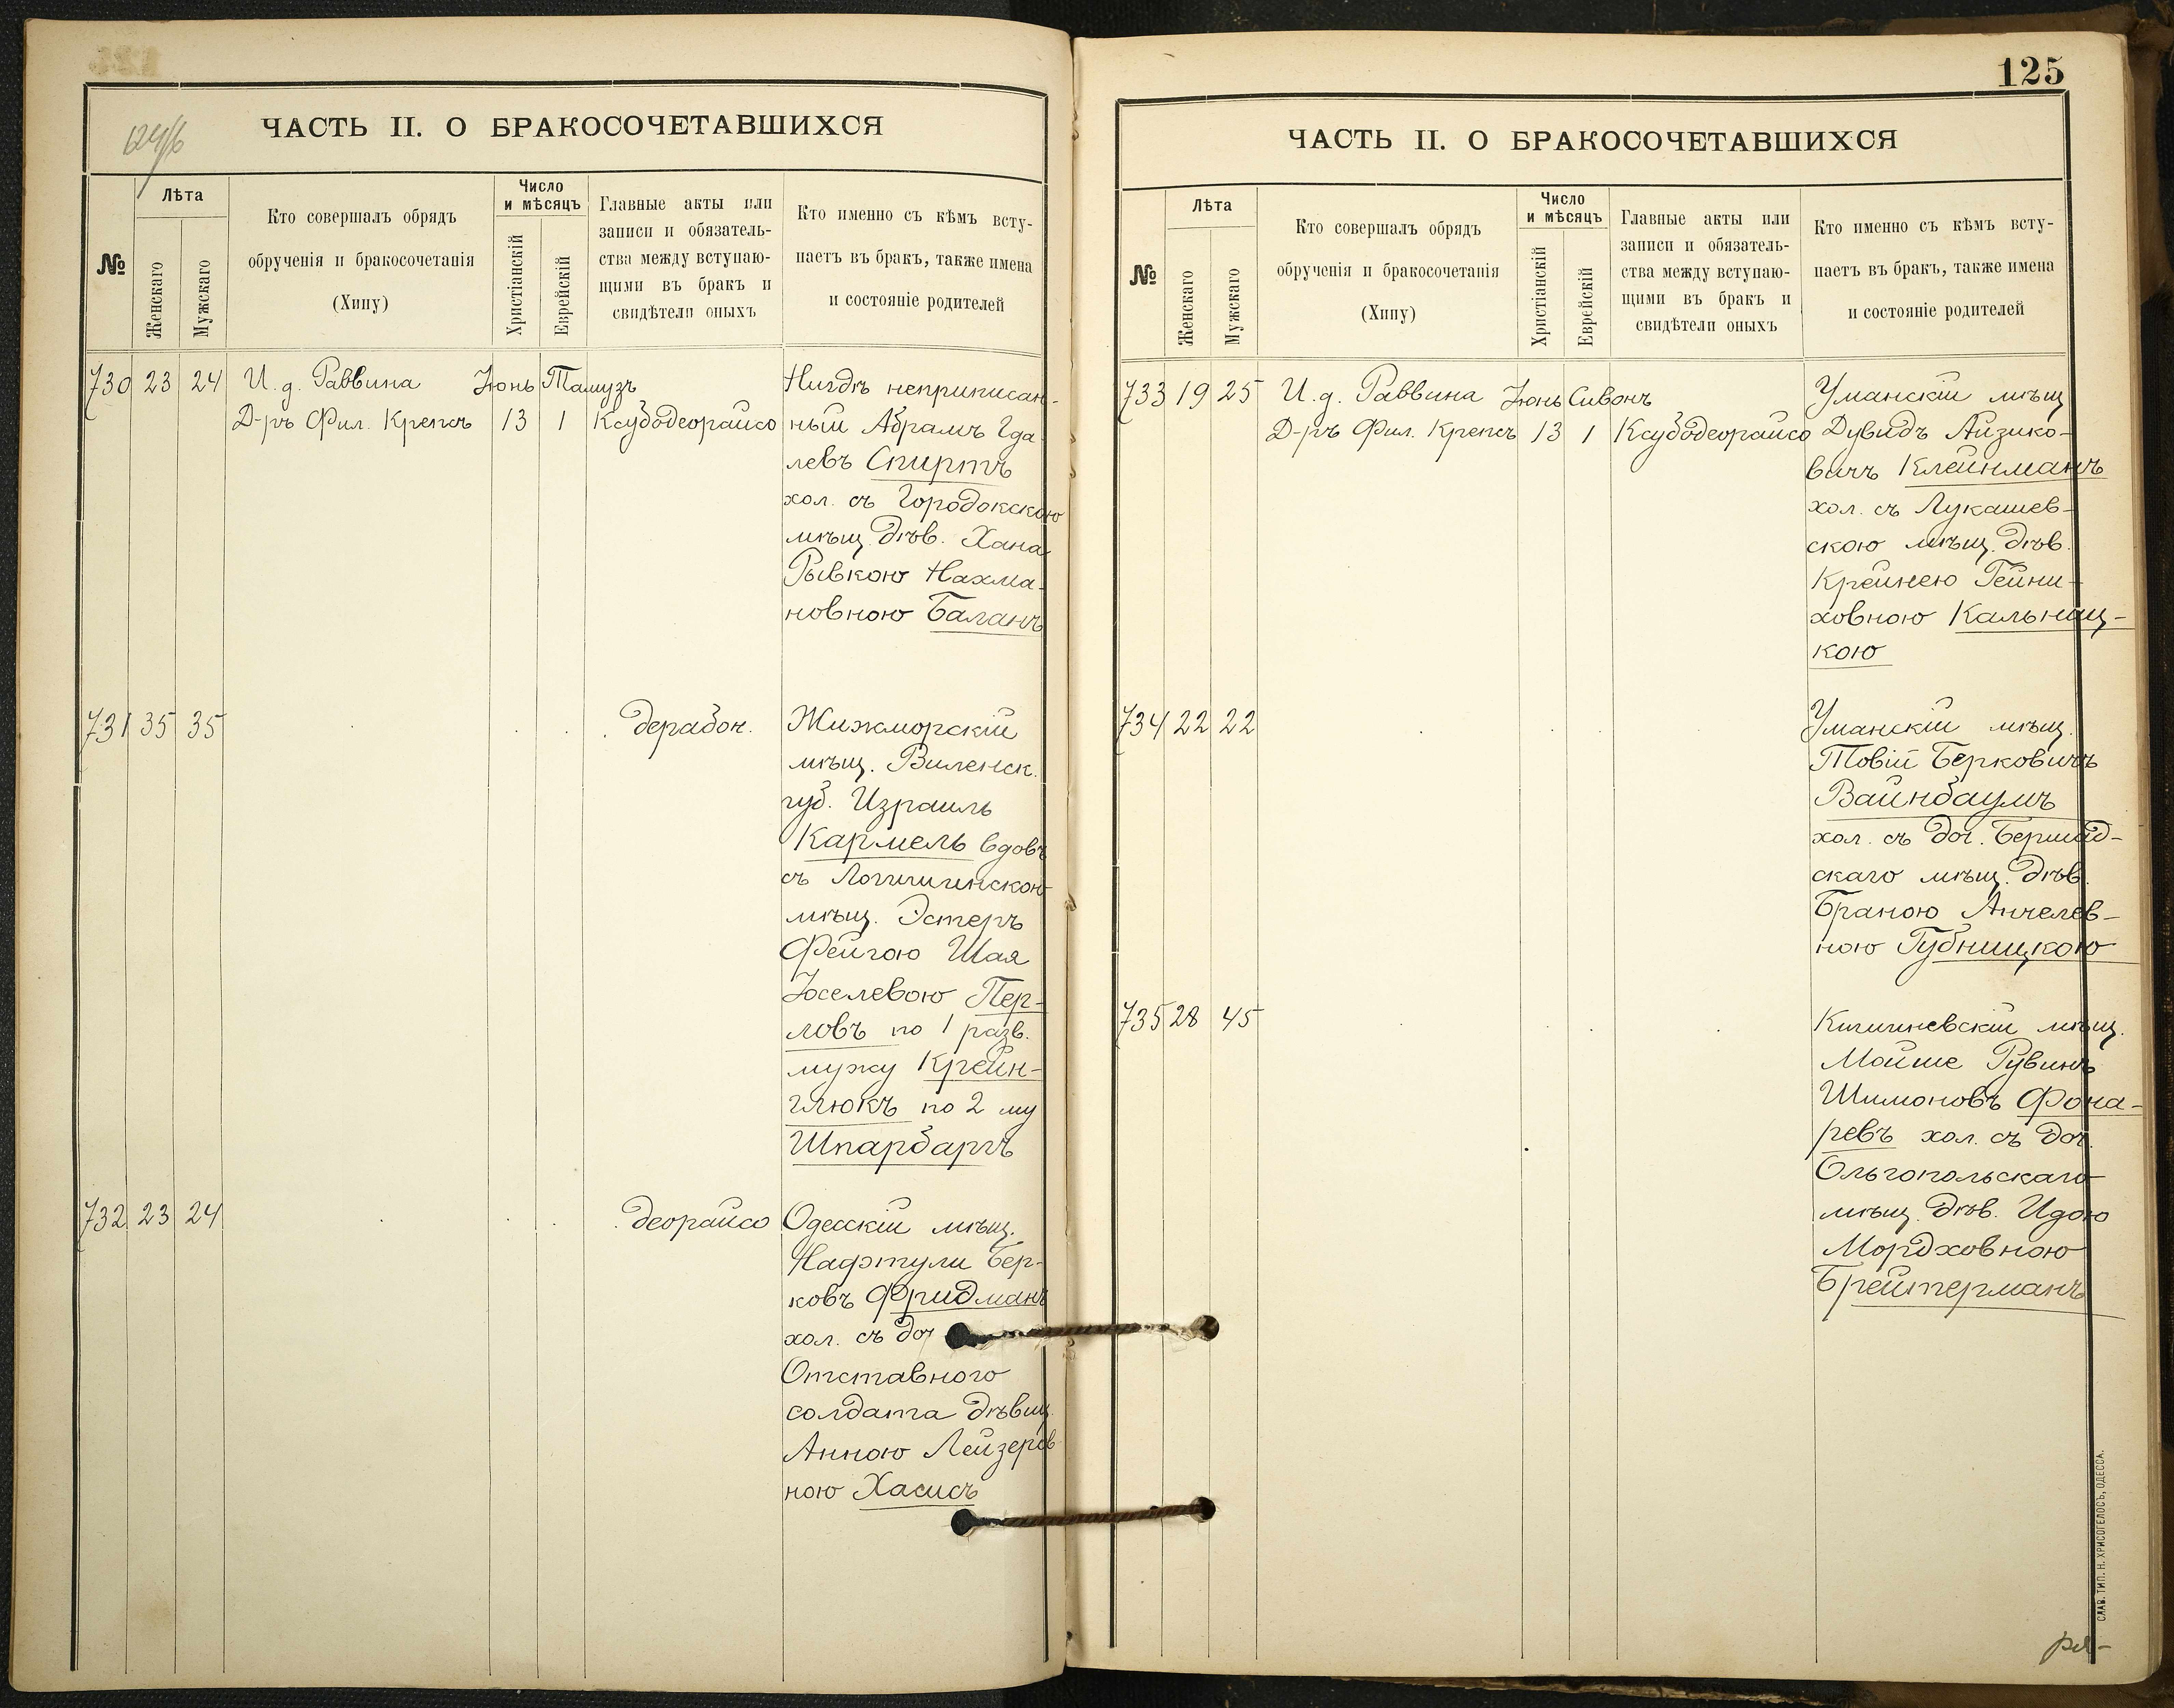 ЧАСТЬ II. О БРАКОСОЧЕТАВШИХСЯ
№
Лѣта
Женскаго
Мужскаго
Кто совершалъ обрядъ
обрученія и бракосочетанія
(Хипу)
Число
и мѣсяцъ
Христіанскій
Еврейскій
Главные акты или
записи и обязатель-
ства между вступаю-
щими въ бракъ и
свидѣтели оныхъ
Кто именно съ кѣмъ всту-
паетъ въ бракъ, также имена
и состояніе родителей
730 23 24 И. д. Раввина Іюнь Тамузъ
Д-ръ Фил. Крепсъ 13 1 Ксубодеорайсо
Нигдѣ неприписан-
ный Абрамъ Гда
левъ Спиртъ
хол. съ Городокскою
мѣщ. дѣв. Хана
Рывкою Нахма-
новною Баланъ
731 35 35 дерабон.
Жижморскій
мѣщ. Виленск.
губ. Израиль
Кармель вдовъ
съ Логишинскою
мѣщ. Эстеръ
Фейгою Шая
Іоселевою Пер-
ловъ по 1 разв.
мужу Крейн-
глюкъ по 2 му
Шпарбаргъ
732 23 24 деорайсо
Одесскій мѣщ.
Нафтули Бер-
ковъ Фридманъ
хол. съ доч
Отставного
солдата дѣвиц.
Анною Лейзеров
ною Хасисъ
125
ЧАСТЬ II. О БРАКОСОЧЕТАВШИХСЯ
№
Лѣта
Женскаго
Мужскаго
Кто совершалъ обрядъ
обрученія и бракосочетанія
(Хипу)
Число
и мѣсяцъ
Христіанскій
Еврейскій
Главные акты или
записи и обязатель-
ства между вступаю-
щими въ бракъ и
свидѣтели оныхъ
Кто именно съ кѣмъ всту-
паетъ въ бракъ, также имена
и состояніе родителей
733 19 25 И. д. Раввина Іюнь Сивонъ
Д-ръ Фил. Крепсъ 13 1 Ксубодеорайсо
Уманскій мѣщ
Дувидъ Айзико-
вичъ Клейнманъ
хол. съ Лукашев-
скою мѣщ. дѣв.
Крейнею Гейни-
ховною Кальниц-
кою
734 22 22
Уманскій мѣщ.
Товій Берковичъ
Вайнбаумъ
хол. съ доч. Бершад-
скаго мѣщ. дѣв.
Браною Анчелев-
ною Губницкою
735 28 45
Кишиневскій мѣщ.
Мойше Рувинъ
Шимоновъ Фона-
ревъ хол. съ доч.
Ольгопольскаго
мѣщ. дѣв. Идою
Мордховною
Брейтерманъ
СЛАВ. ТИП. Н. ХРИСОГЕЛОСЪ, ОДЕССА.